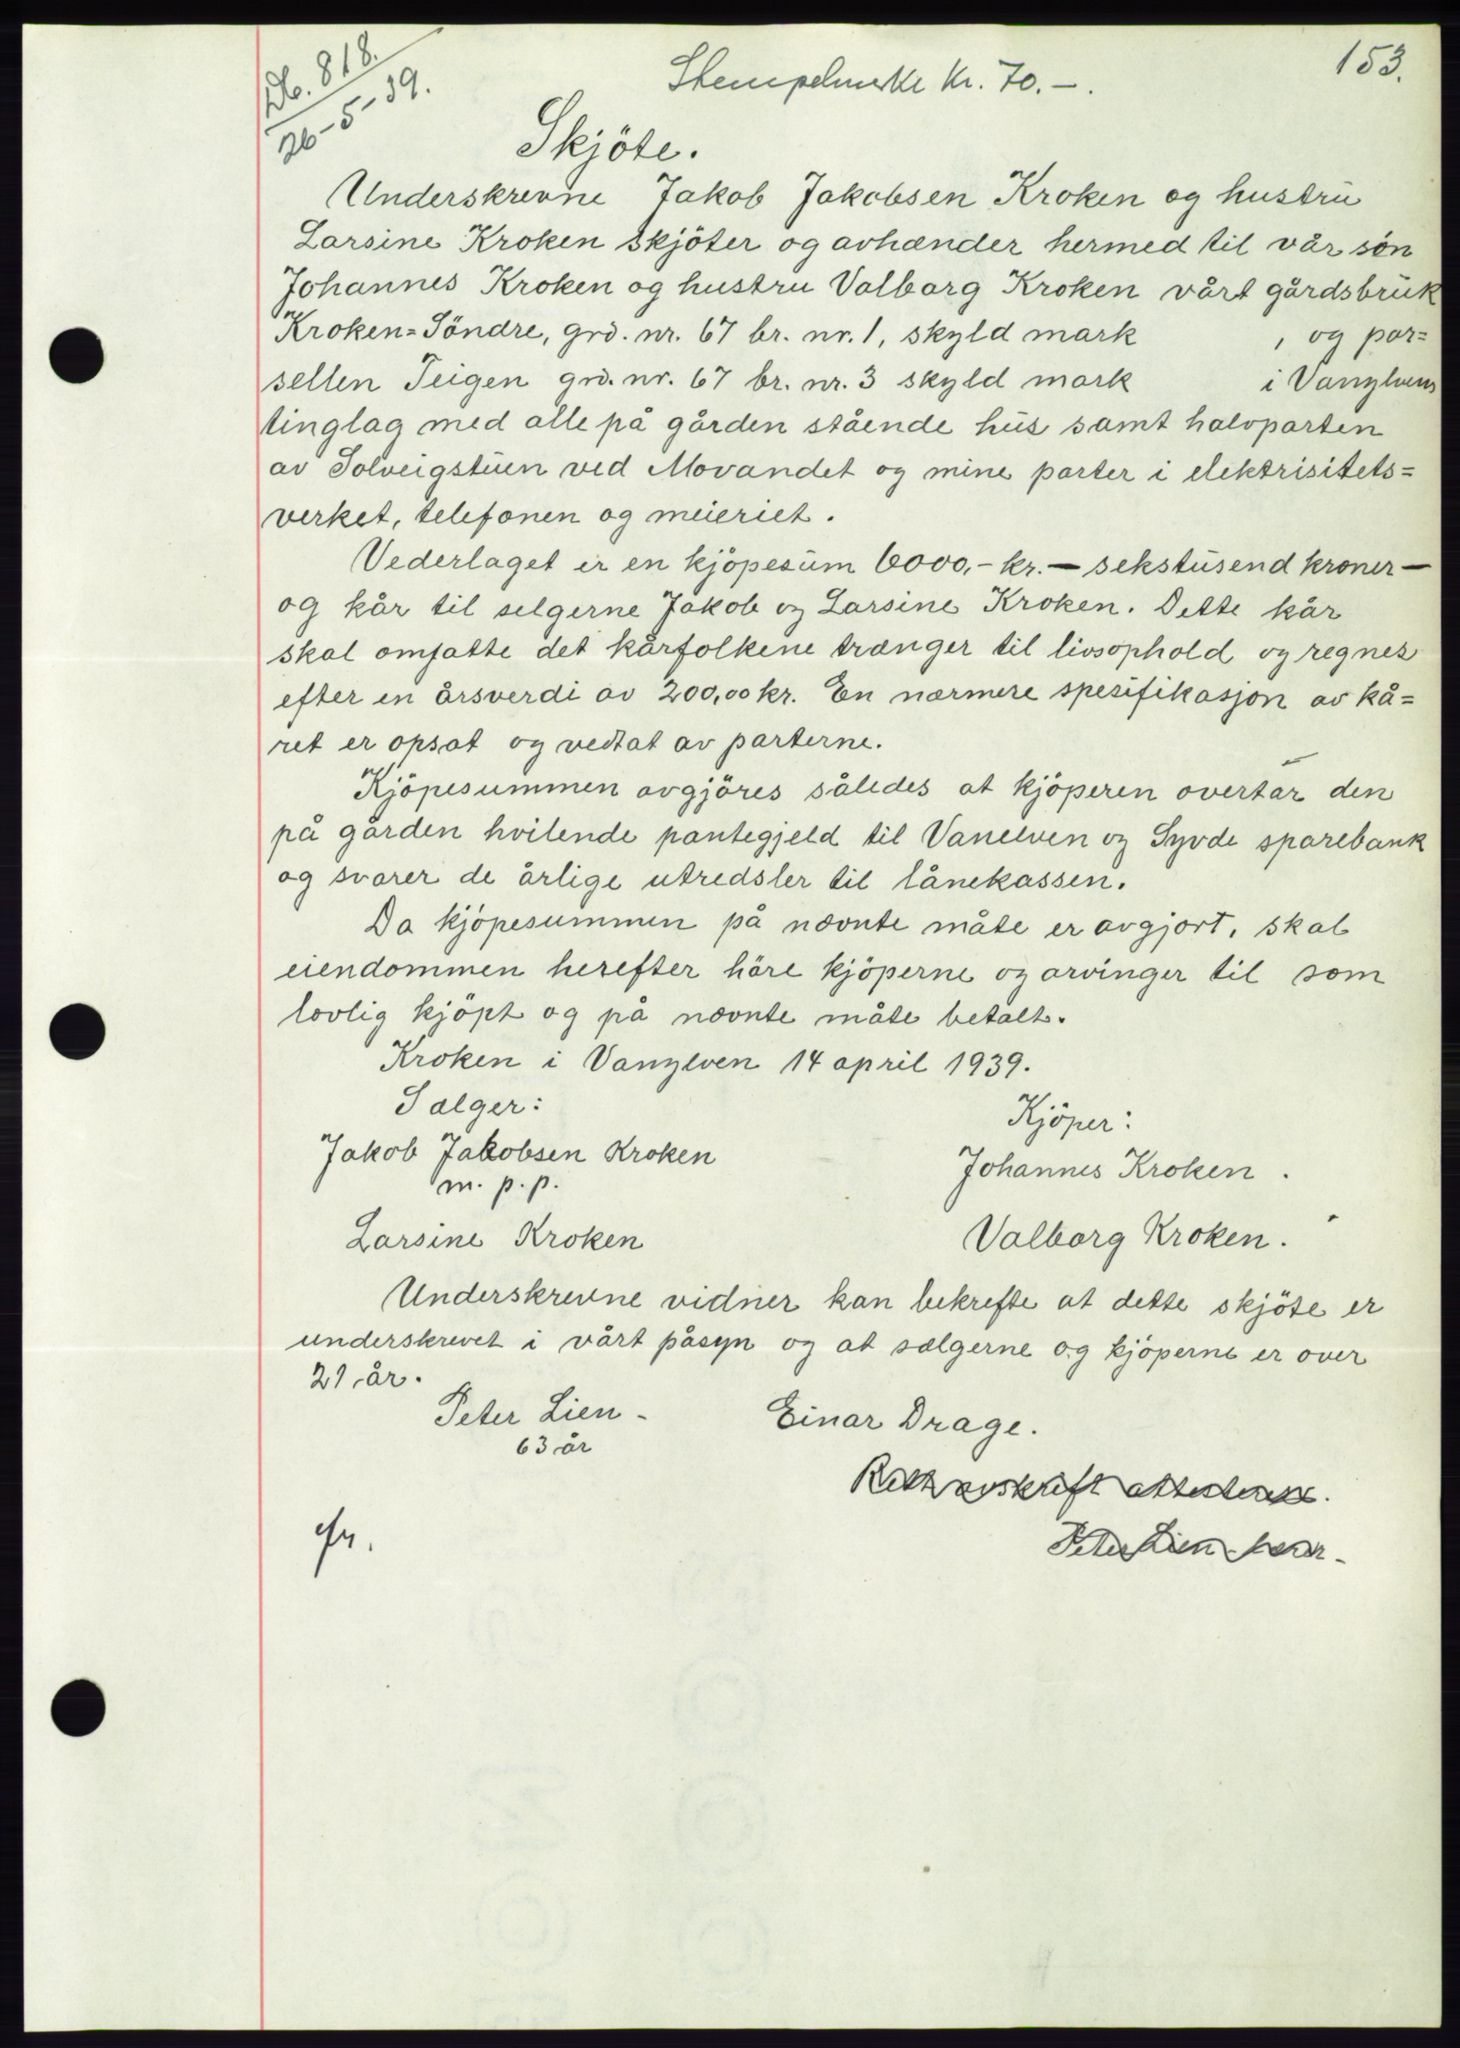 Db. 818.
26-5-39.
Stempelmerke kr. 70.-.
153.
Skjöte.
Underskrevne Jakob Jakobsen Kroken og hustru
Larsine Kroken skjöter og avhænder hermed til vår sön
Johannes Kroken og hustru Valborg Kroken vårt gårdsbruk
Kroken-Söndre, grd. nr. 67 br. nr. 1, skyld mark , og par=
sellen Teigen grd. nr. 67 br. nr. 3 skyld mark i Vanylvens
tinglag med alle på gården stående hus samt halvparten
av Solveigstuen ved Movandet og mine parter i elektrisitets=
verket, telefonen og meieriet.
Vederlaget er en kjöpesum 6000,- kr. — sekstusend kroner —
og kår til selgerne Jakob og Larsine Kroken. Dette kår
skal omfatte det kårfolkene trænger til livsophold og regnes
efter en årsverdi av 200,00 kr. En nærmere spesifikasjon av kå=
ret er opsat og vedtat av parterne.
Kjöpesummen avgjöres således at kjöperen overtar den
på gården hvilende pantegjeld til Vanelven og Syvde sparebank
og svarer de årlige utredsler til lånekassen.
Da kjöpesummen på nævnte måte er avgjort, skal
eiendommen herefter höre kjöperne og arvinger til som
lovlig kjöpt og på nævnte måte betalt.
Kroken i Vanylven 14 april 1939.
Sælger:
Kjöper:
Jakob Jakobsen Kroken
m. p. p.
Johannes Kroken.
Larsine Kroken
Valborg Kroken.
Underskrevne vidner kan bekrefte at dette skjöte er
underskrevet i vårt påsyn og at sælgerne og kjöperne er over
21 år.
Peter Lien -
63 år
Einar Drage.
Rett avskrift attesteres.
Peter Lien